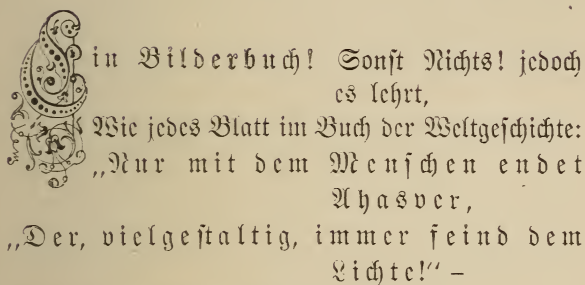 Ein Bilderbuch! Sonst Nichts! jedoch
es lehrt,
Wie jedes Blatt im Buch der Weltgeschichte:
„Nur mit dem Menschen endet
Ahasver,
„Der, vielgestaltig, immer feind dem
Lichte!“ –